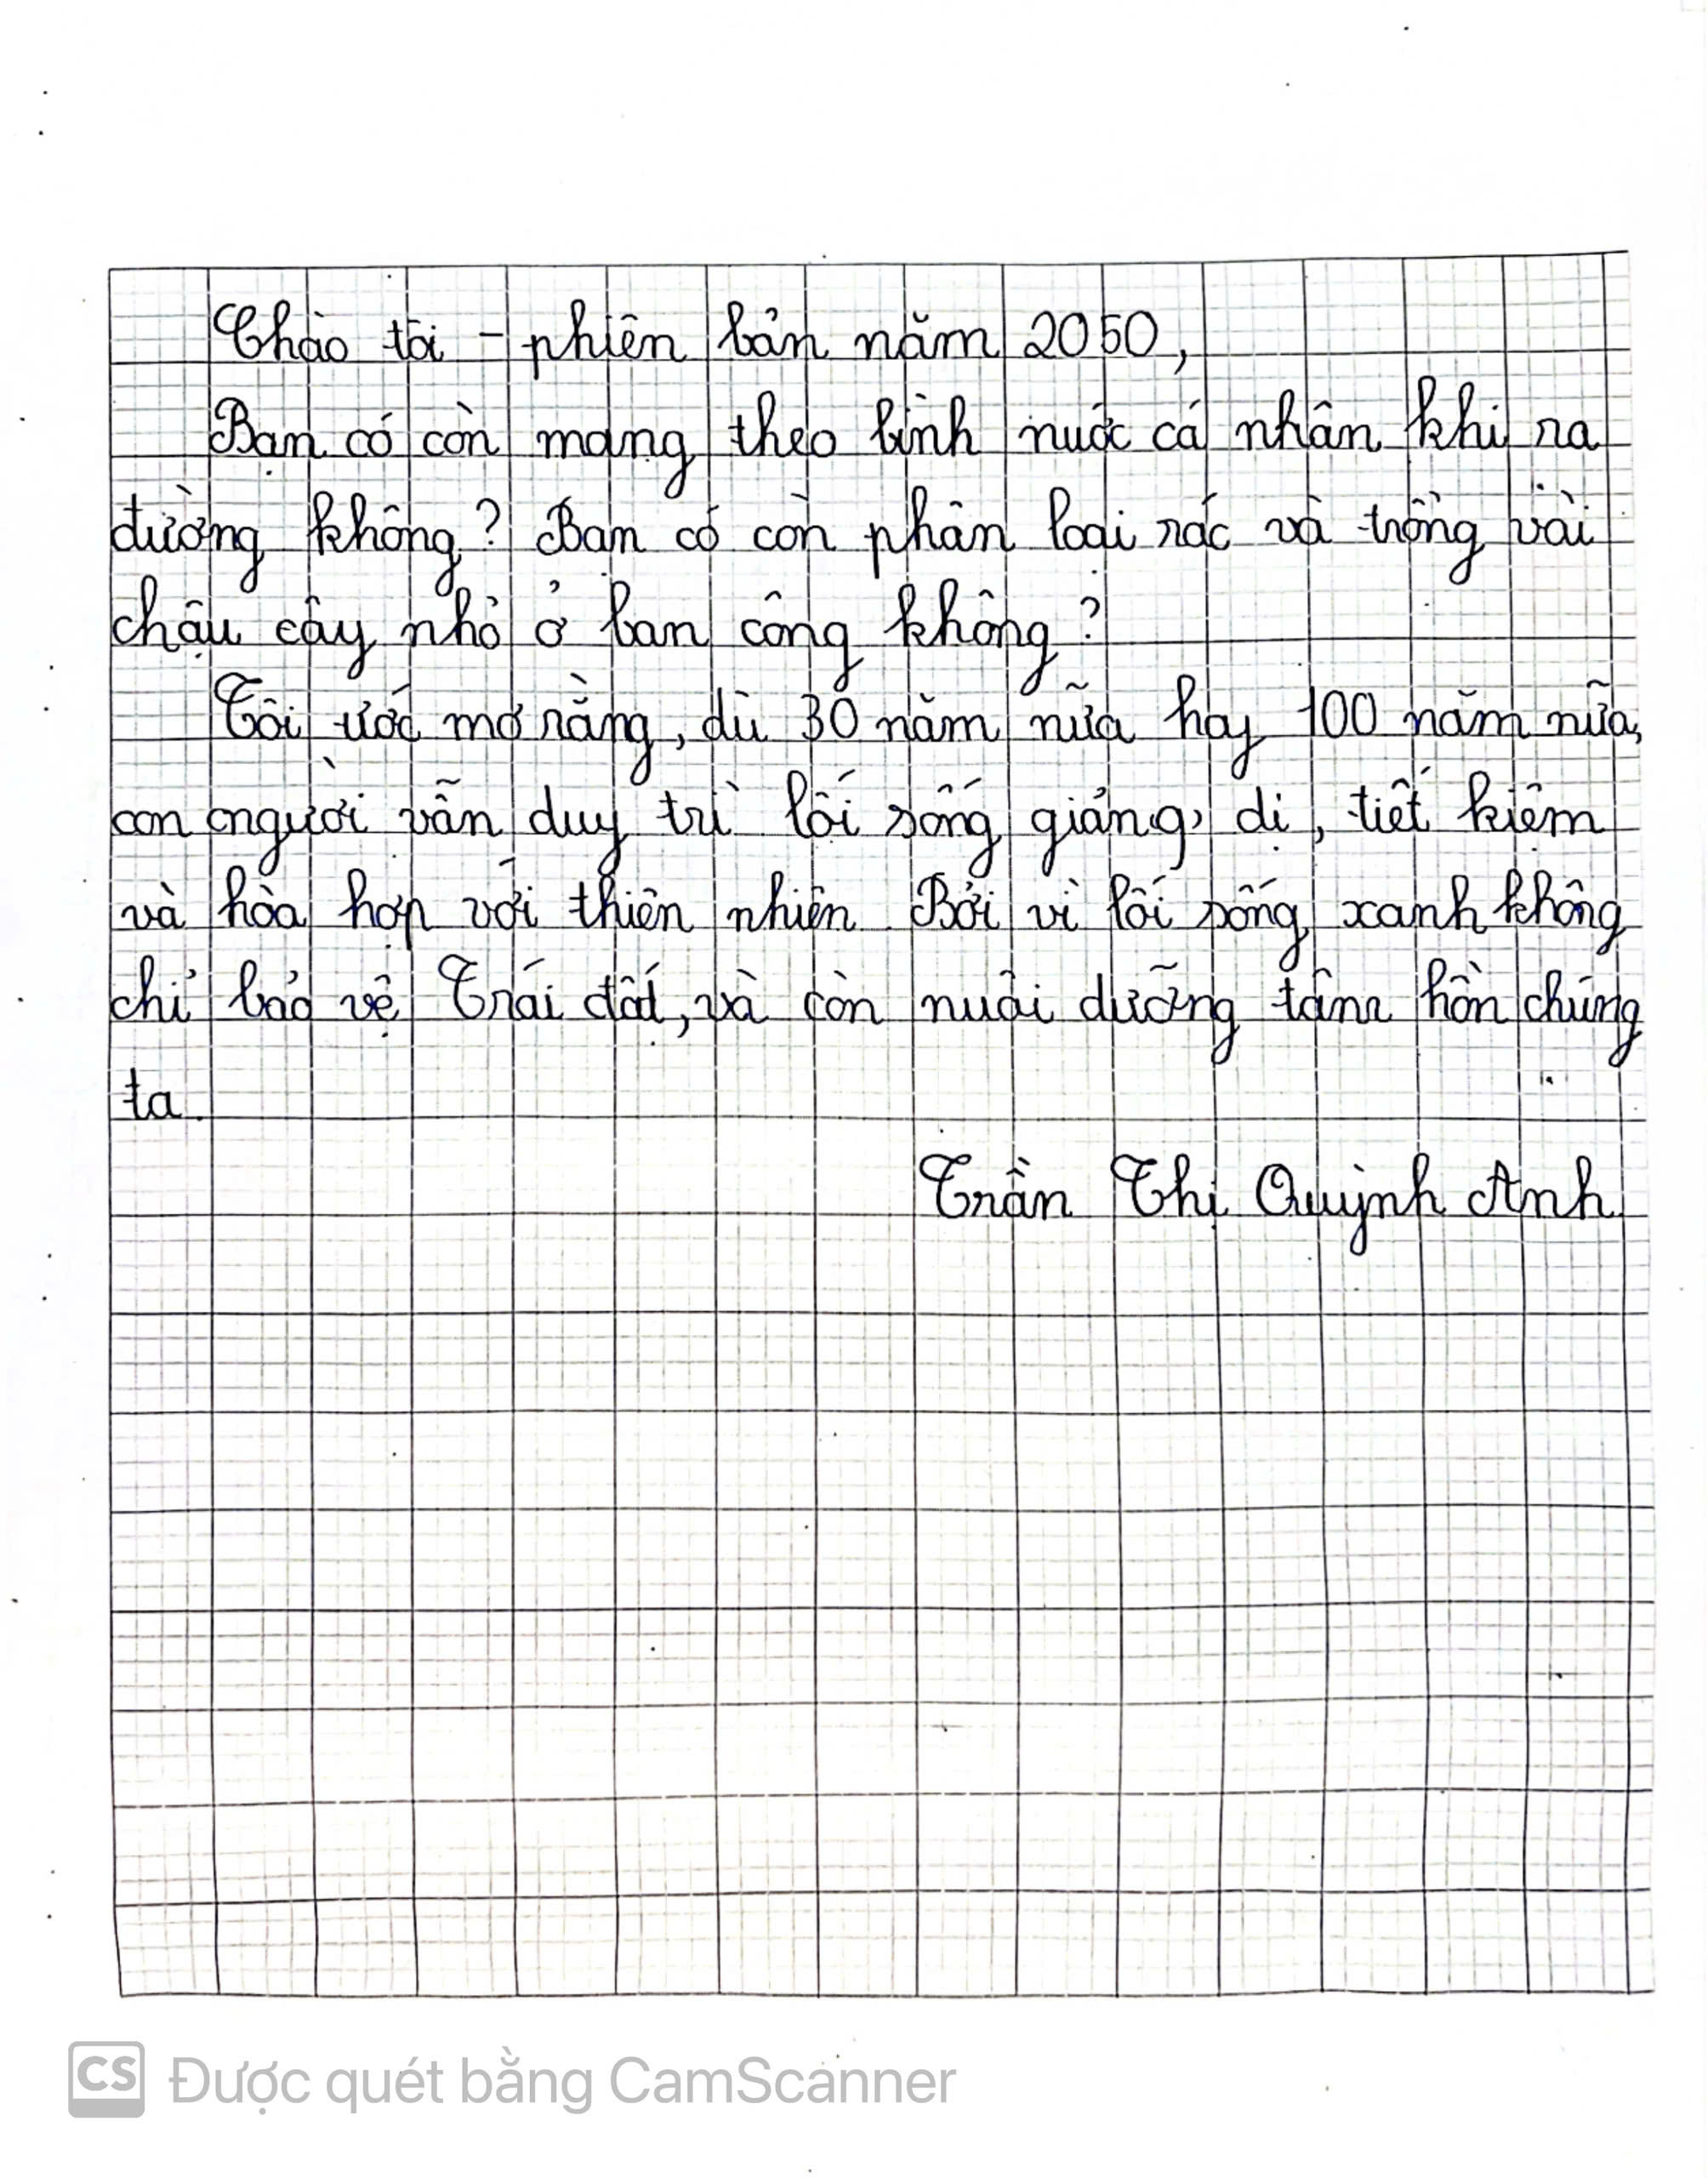 Chào tôi - phiên bản năm 2050,
Bạn có còn mang theo bình nước cá nhân khi ra
đường không? Bạn có còn phân loại rác và trồng vài
chậu cây nhỏ ở ban công không?
Tôi ước mơ rằng, dù 30 năm nữa hay 100 năm nữa,
con người vẫn duy trì lối sống giảng dị, tiết kiệm
và hòa hợp với thiên nhiên. Bởi vì lối sống xanh không
chỉ bảo vệ Trái đất, và còn nuôi dưỡng tâm hồn chúng
ta.
Trần Thị Quỳnh Anh
CS Được quét bằng CamScanner